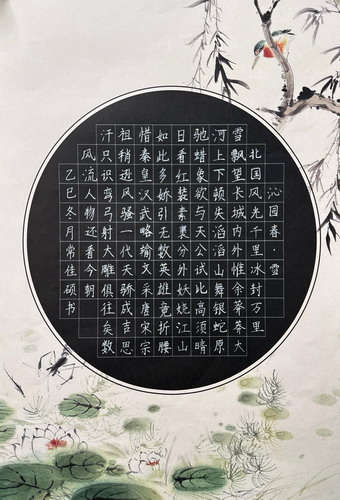 沁园春·雪
北国风光千里冰封万里
雪飘望长城内外惟余莽莽大
河上下顿失滔滔山舞银蛇原
驰蜡象欲与天公试比高须晴
日看红装素裹分外妖娆江山
如此多娇引无数英雄竟折腰
惜秦皇汉武略输文采唐宋宗
祖稍逊风骚一代天骄成吉思
汗只识弯弓射大雕俱往矣数
风流人物还看今朝
乙巳冬月常佳硕书